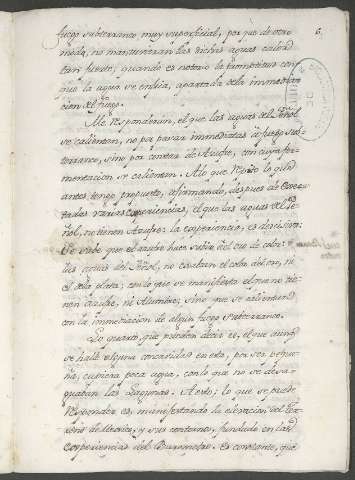 6.
fuego subterraneo muy superficial, por que de otro
modo, no mantuvieran las dichas aguas calor
tan fuerte, quando es notorio la promptitud con
que la agua se enfria, apartada de la inmedia
cion del fuego.
Me responderàn, el que las aguas del Peñol
se calientan, no por pasar inmediatas à fuego sub
terraneo, sino por constar de Azufre, con cuya fer
mentacion se calientan. A lo que repito lo que
antes tengo propuesto, afirmando, despues de exe
cutadas varias experiencias, el que las aguas del Pe
ñol, no tienen Azufre: la experiencia, es decisiva:
se sabe que el azufre hace subir del oro de color:
las aguas del Peñol, no exaltan el color del oro, ni
el de la plata; con lo que se manifiesta el que no tie
nen azufre, ni Alumbre; sino que se calientan
con la inmediacion de algun fuego subterraneo.
Lo quarto, que pueden decir es, el que aunq.
se halle alguna concavidad en esta, por ser peque
ña, cupiera poca agua, con lo que no se desa
guaban las Lagunas. A esto; lo que se puede
responder es, manifestando la elevacion del ter
reno de Mexico, y sus contornos, fundado en las
experiencias del Barometro. Es constante, que